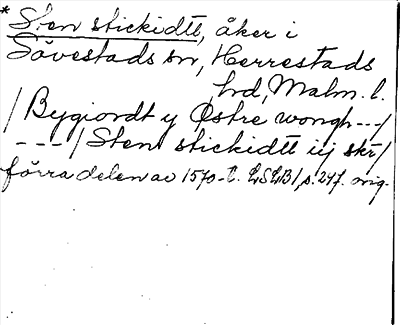 * Sten stickidtt, åker i
Sövestads sn, Herrestads
hrd, Malm. l.
/Bygiordt y Østre wongh---/
---/Sten stickidtt iij skr/
förra delen av 1570-t. LSLB1, s. 247. orig.